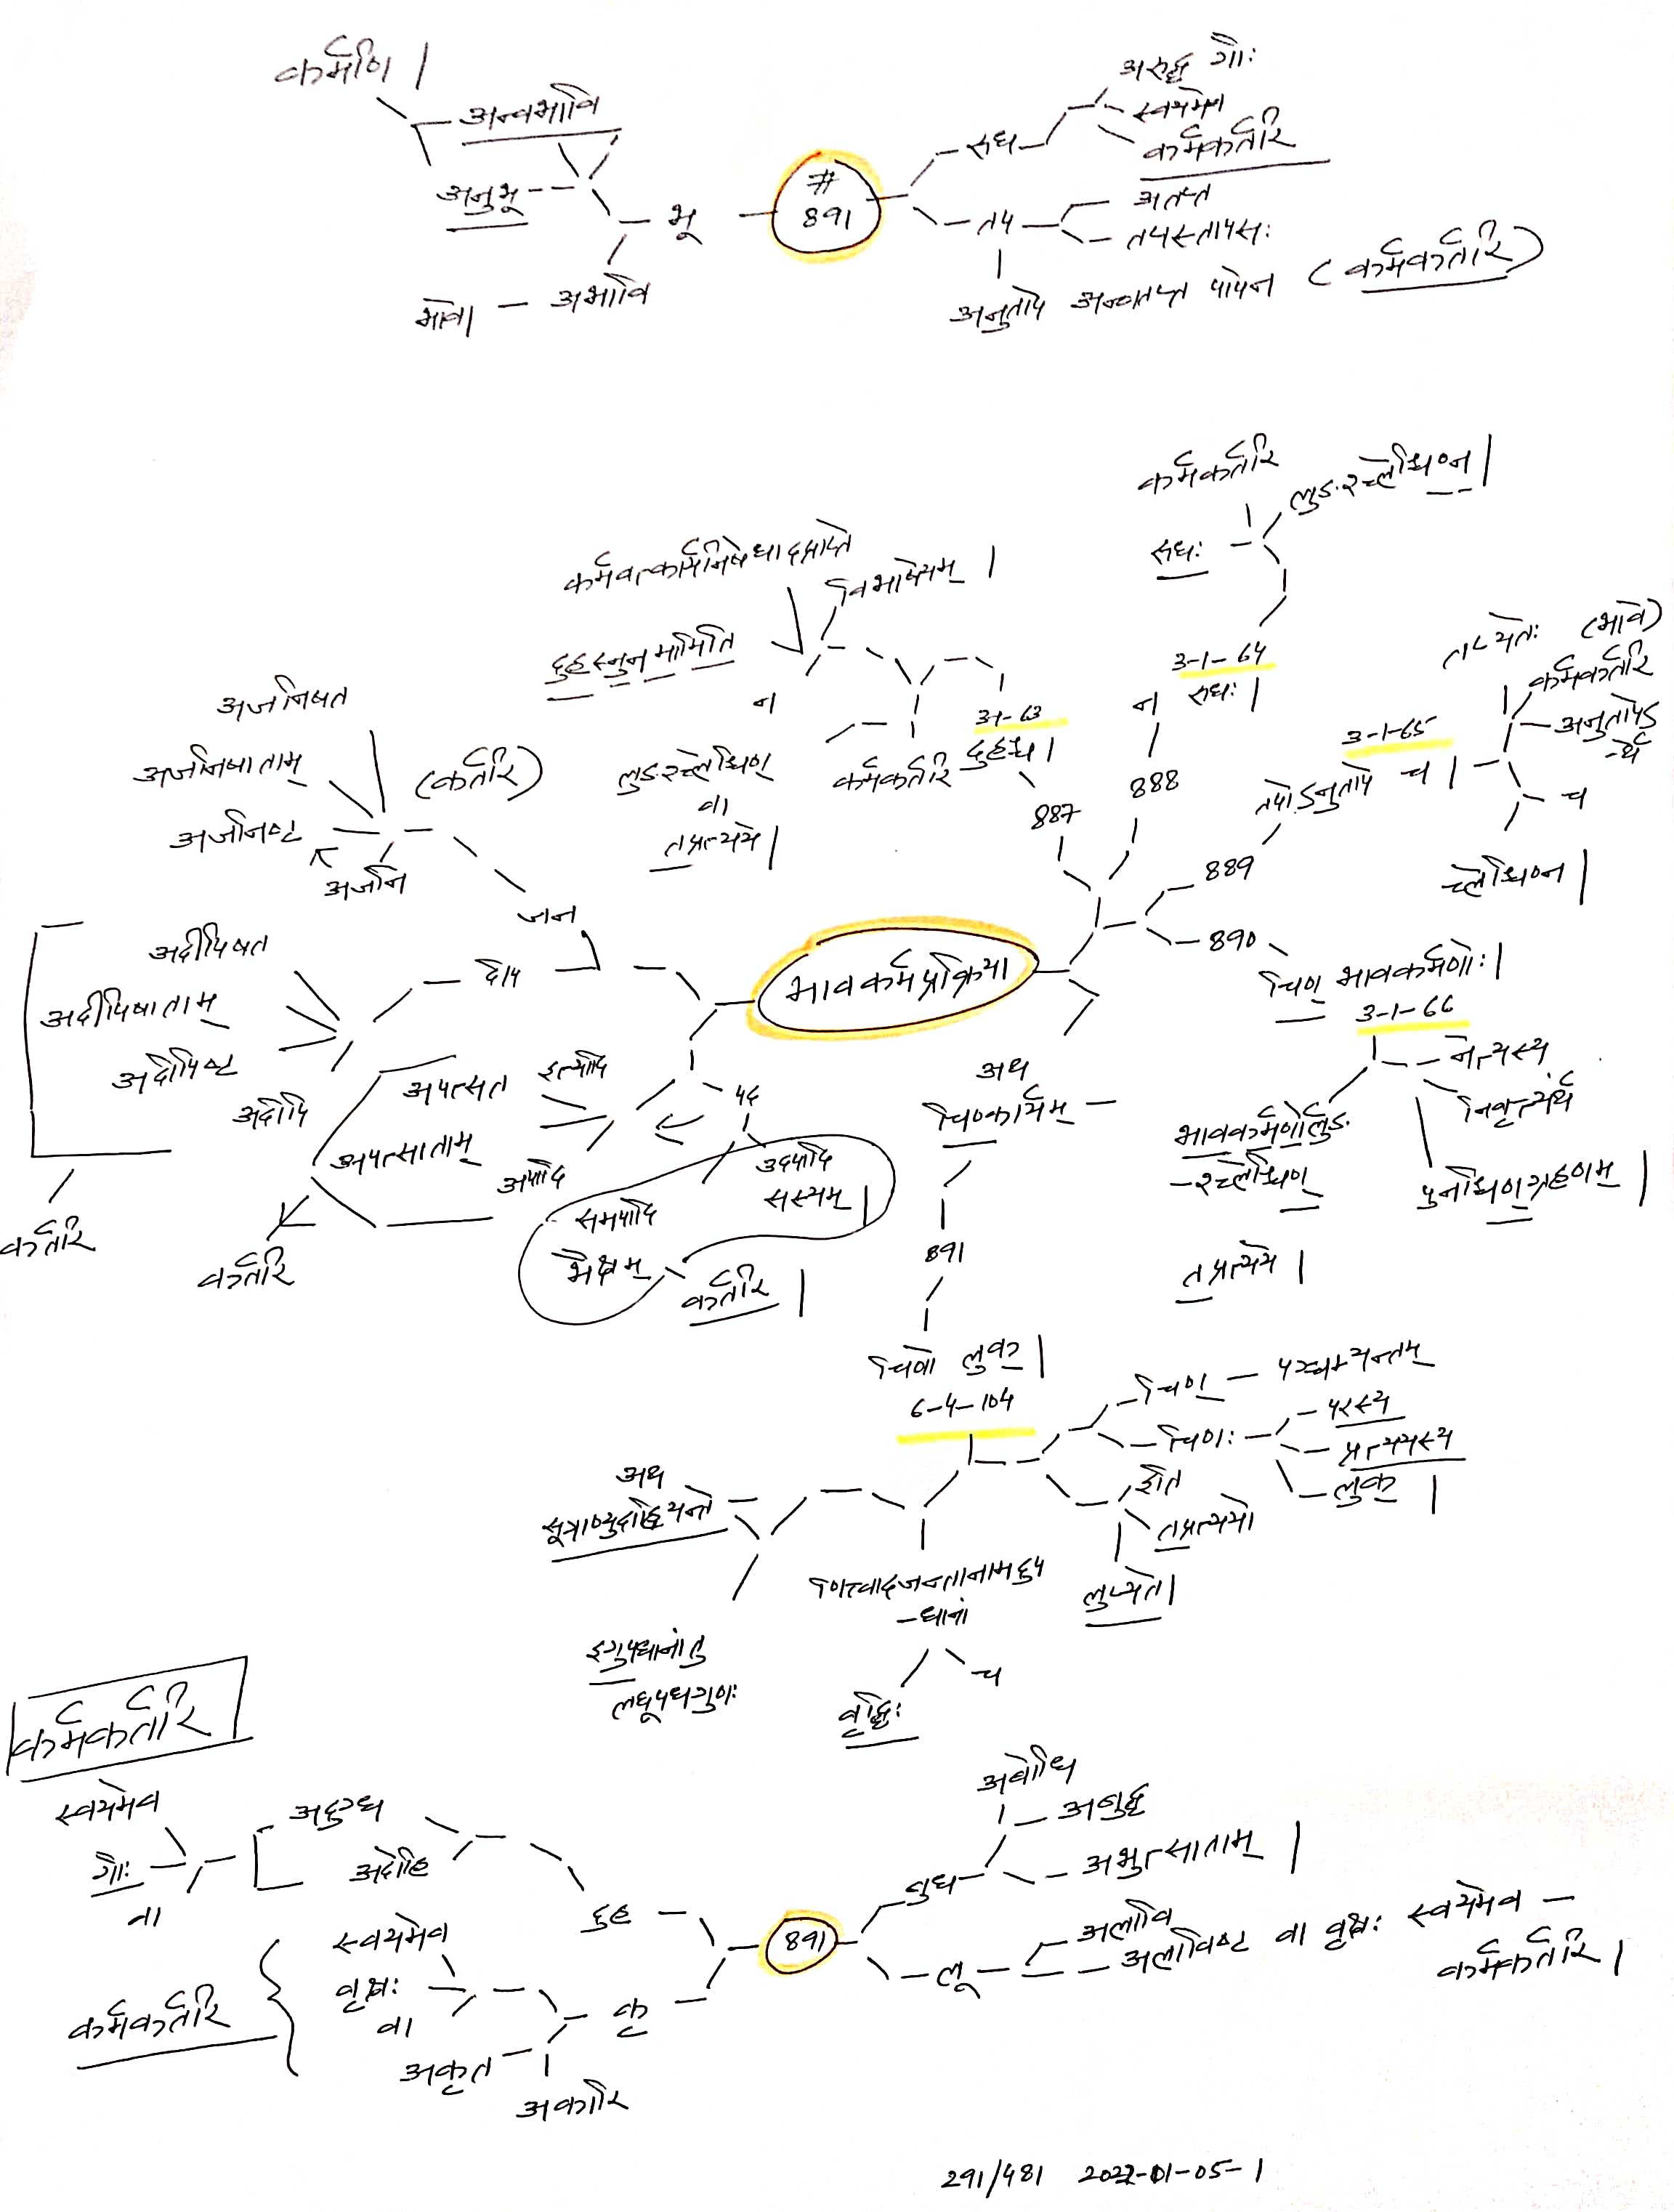 कर्मणि |
अन्वभावि
अनुभू
भू
भावे | – अभावि
#
891
रुध
अरुद्ध गौः
स्वयमेव
कर्मकर्तरि
तप
अतप्त
तपस्तापसः
अनुतापे अन्वतप्त पापेन (कर्मकर्तरि)
कर्मकर्तरि
लुङश्च्लेश्चिण्न |
रुधः
3-1-64
रुधः |
न
888
कर्मवत्कर्मनिषेधादप्राप्ते
विभाषेयम् |
दुहस्नुनमामिति
न
लुङश्च्लेश्चिण्
वा
तप्रत्यये |
कर्मकर्तरि
3-1-63
दुहश्च |
887
तप्यतेः (भावे)
कर्मकर्तरि
अनुतापेऽ
-र्थे
च
3-1-65
तपोऽनुतापे च |
889
च्लेश्चिण्न |
890
चिण् भावकर्मणोः |
3-1-66
नेत्यस्य
निवृत्त्यर्थं
पुनश्चिण्ग्रहणम् |
भावकर्मणोर्लुङ
-श्च्लेश्चिण्
तप्रत्यये |
भावकर्मप्रक्रिया
अजनिषत
अजनिषाताम्
अजनिष्ट
अजनि
(कर्तरि)
जन
दीप
अदीपिषत
अदीपिषाताम्
अदीपिष्ट
अदीपि
कर्तरि
पद
इत्यादि
अपत्सत
अपत्साताम्
अपादि
कर्तरि
उदपादि
सस्यम् |
समपादि
भैक्षम्
कर्तरि |
अथ
चिण्कार्यम्
891
चिणो लुक् |
6-4-104
चिण् – पञ्चम्यन्तम्
चिणः
परस्य
प्रत्ययस्य
लुक् |
इति
तप्रत्ययो
लुप्यते |
अथ
सूत्राण्युदाह्रियन्ते
णित्त्वादजन्तानामदुप
-धानां
च
वृद्धिः
इगुपधानां तु
लघूपधगुणः
कर्मकर्तरि
स्वयमेव
गौः
वा
अदुग्ध
अदोहि
दुह
891
बुध
अबोधि
अबुद्ध
अभुत्साताम् |
लू
अलावि
अलविष्ट वा वृक्षः स्वयमेव –
कर्मकर्तरि |
कृ
स्वयमेव
वृक्षः
वा
अकृत
अकारि
कर्मकर्तरि
291/481 2022-01-05-1